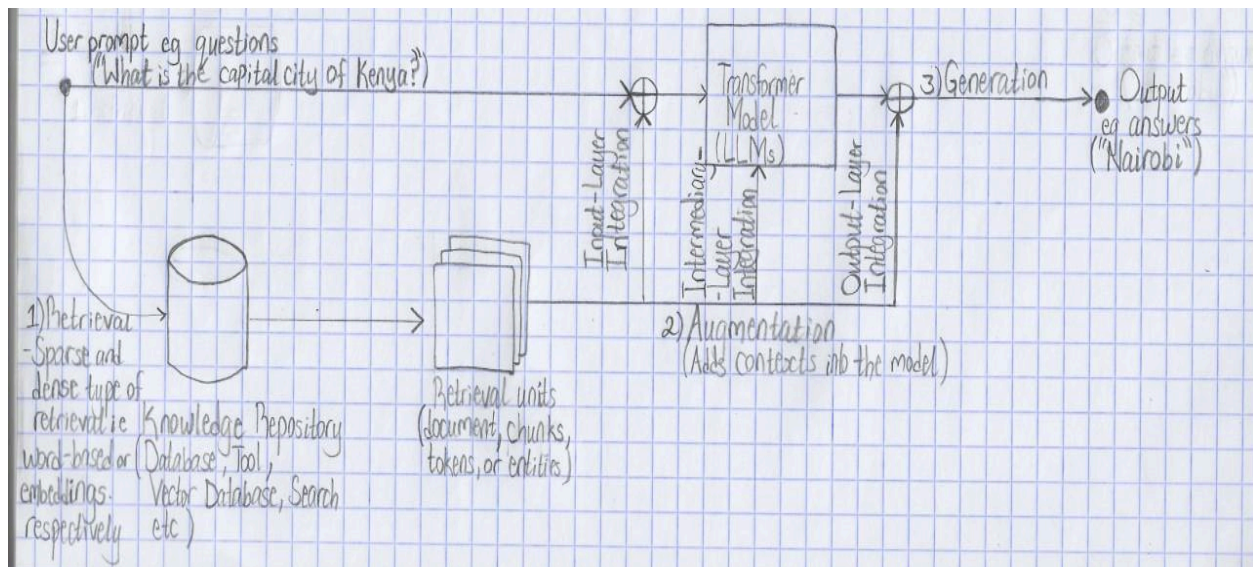 User prompt eg questions
("What is the capital city of Kenya?")
Transformer
Model
(LLMs)
3) Generation
Output
eg answers
("Nairobi")
Input-Layer
Integration
Intermediary-
-Layer
Integration
Output-Layer
Integration
1) Retrieval
-Sparse and
dense type of
retrieval ie
word-based or
embeddings.
respectively
Knowledge Repository
(Database, Tool,
Vector Database, Search
etc)
Retrieval units
(document, chunks,
tokens, or entities)
2) Augmentation
(Adds contexts into the model)